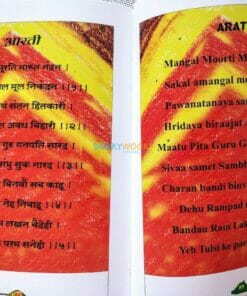 आरती
मूरति मारुत नंदन
मूल निकंदन ।।१।।
संतन हितकारी
अवध बिहारी ।।२।।
गुरु गनपति सारद
संभु सुक नारद ।।३।।
बिनवौं सब काहू
नेह निबाहू ।।४।।
लखन बैदेही
परम सनेही ।।५।।
ARAT
Mangal Moorti M
Sakal amangal m
Pawanatanaya s
Hridaya biraajat
Maatu Pita Guru G
Sivaa samet Samb
Charan bandi bin
Dehu Rampad n
Bandau Ram Lak
Yeh Tulsi ke pa